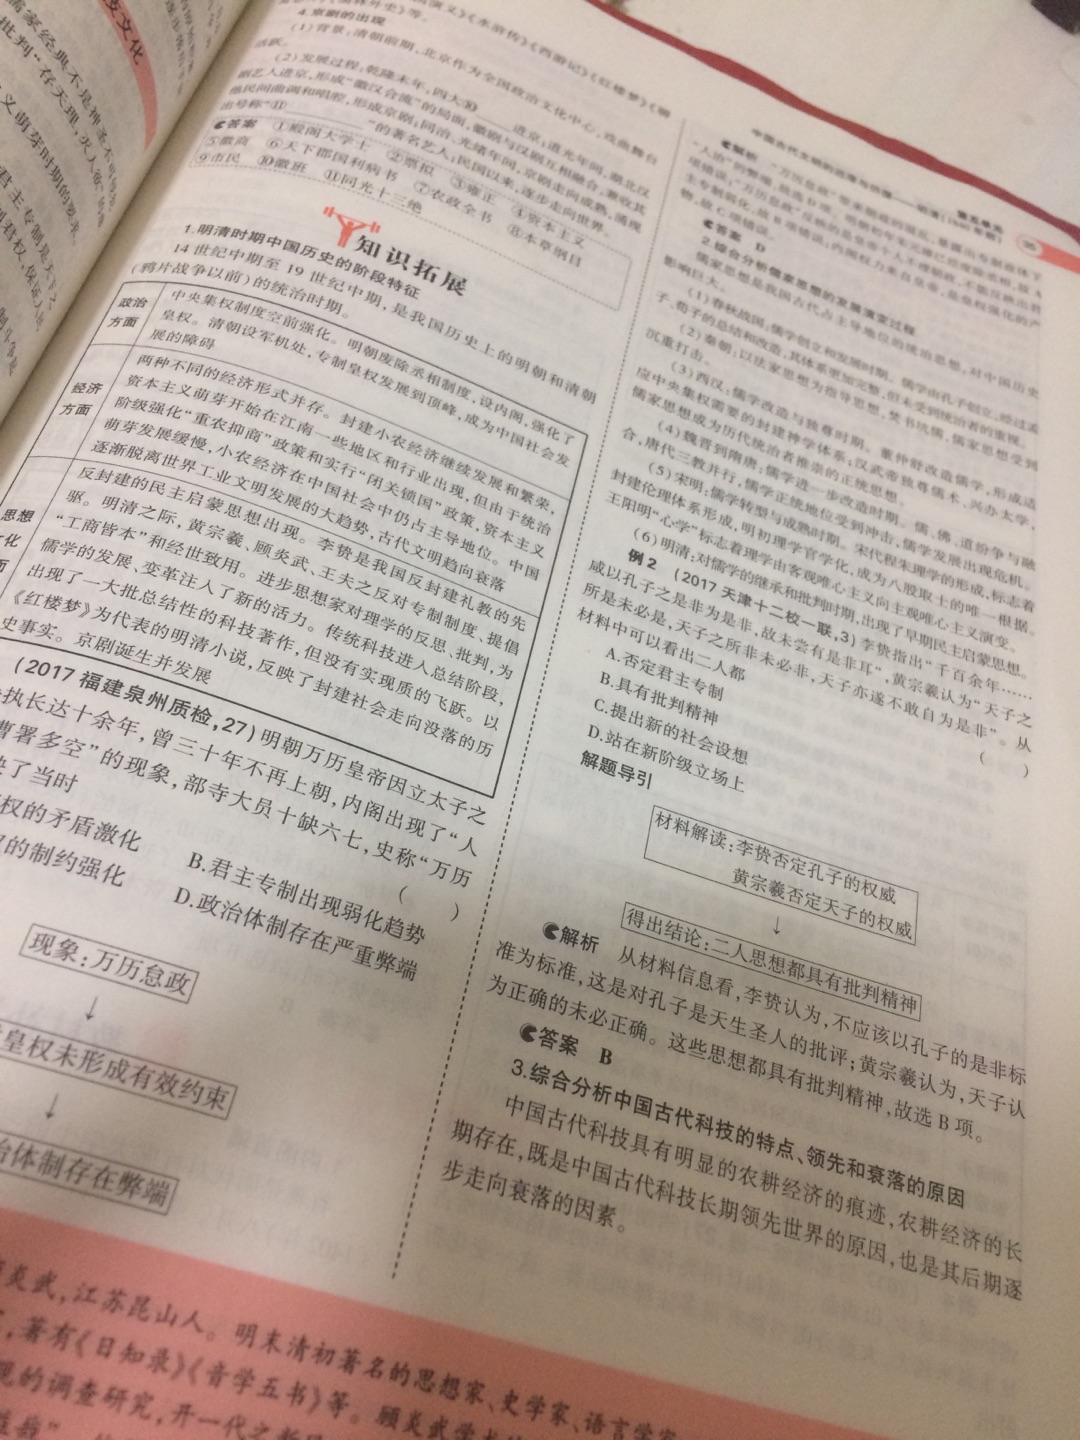 儒家经典不是神圣不可
批判“存天理，灭人欲”的
义萌芽时期的要求。
演义》《水浒传》《西游记》《红楼梦》《聊
外史》等。
4.京剧的出现
(1)背景：清朝前期，北京作为全国政治文化中心，戏曲舞台
活跃。
(2)发展过程：乾隆末年，四大⑩进京；道光年间，湖北汉
剧艺人进京，形成“徽汉合流”的局面，徽剧与汉剧互相融合，兼收其
他民间曲调和唱腔，形成京剧；同治、光绪年间，京剧走向成熟，涌现
出号称“⑪”的著名艺人；民国以来，逐步走向世界。
答案 ①殿阁大学士 ②票拟 ③雍正 ④资本主义
⑤徽商 ⑥天下郡国利病书 ⑦农政全书 ⑧本草纲目
⑨市民 ⑩徽班 ⑪同光十三绝
知识拓展
1.明清时期中国历史的阶段特征
14世纪中期至19世纪中期，是我国历史上的明朝和清朝
(鸦片战争以前)的统治时期。
政治
方面
中央集权制度空前强化。明朝废除丞相制度，设内阁，强化了
皇权。清朝设军机处，专制皇权发展到顶峰，成为中国社会发
展的障碍
经济
方面
两种不同的经济形式并存。封建小农经济继续发展和繁荣，
资本主义萌芽开始在江南一些地区和行业出现，但由于统治
阶级强化“重农抑商”政策和实行“闭关锁国”政策，资本主义
萌芽发展缓慢，小农经济在中国社会中仍占主导地位。中国
逐渐脱离世界工业文明发展的大趋势，古代文明趋向衰落
思想
化
面
反封建的民主启蒙思想出现。李贽是我国反封建礼教的先
驱。明清之际，黄宗羲、顾炎武、王夫之反对专制制度、提倡
“工商皆本”和经世致用。进步思想家对理学的反思、批判，为
儒学的发展、变革注入了新的活力。传统科技进入总结阶段，
出现了一大批总结性的科技著作，但没有实现质的飞跃。以
《红楼梦》为代表的明清小说，反映了封建社会走向没落的历
史事实。京剧诞生并发展
(2017福建泉州质检，27)明朝万历皇帝因立太子之
执长达十余年，曾三十年不再上朝，内阁出现了“人
曹署多空”的现象，部寺大员十缺六七，史称“万历
映了当时 ( )
权的矛盾激化 B.君主专制出现弱化趋势
的制约强化 D.政治体制存在严重弊端
现象：万历怠政
↓
皇权未形成有效约束
↓
治体制存在弊端
第五单元
中国古代文明的
35
“人治”的弊端，故选D项。
主专制弱化，故B项错误；内阁权力来自皇帝，是皇权强化的产
物，故C项错误。
答案 D
2.综合分析儒家思想的发展演变过程
儒家思想是我国古代占主导地位的统治思想，对中国历史
影响巨大。
(1)春秋战国：儒学创立和发展时期。儒学由孔子创立，经过孟
子、荀子的总结和改造，其体系更加完整，但未受到统治者的重视。
(2)秦朝：以法家思想为指导思想，焚书坑儒，儒家思想受到
沉重打击。
(3)西汉：儒学改造与独尊时期。董仲舒改造儒学，形成适
应中央集权需要的封建神学体系；汉武帝独尊儒术、兴办太学，
儒家思想成为历代统治者推崇的正统思想。
(4)魏晋到隋唐：儒学进一步改造时期。儒、佛、道纷争与融
合，唐代三教并行，儒学正统地位受到冲击，儒学发展出现危机。
(5)宋明：儒学转型与成熟时期。宋代程朱理学的形成，标志着
封建伦理体系形成，明初理学官学化，成为八股取士的唯一根据。
王阳明“心学”标志着理学由客观唯心主义向主观唯心主义演变。
(6)明清：对儒学的继承和批判时期，出现了早期民主启蒙思想。
例2 (2017天津十二校一联，3)李贽指出“千百余年……
咸以孔子之是非为是非，故未尝有是非耳”，黄宗羲认为“天子之
所是未必是，天子之所非未必非，天子亦遂不敢自为是非”。从
材料中可以看出二人都 ( )
A.否定君主专制
B.具有批判精神
C.提出新的社会设想
D.站在新阶级立场上
解题导引
材料解读：李贽否定孔子的权威
黄宗羲否定天子的权威
↓
得出结论：二人思想都具有批判精神
解析 从材料信息看，李贽认为，不应该以孔子的是非标
准为标准，这是对孔子是天生圣人的批评；黄宗羲认为，天子认
为正确的未必正确。这些思想都具有批判精神，故选B项。
答案 B
3.综合分析中国古代科技的特点、领先和衰落的原因
中国古代科技具有明显的农耕经济的痕迹，农耕经济的长
期存在，既是中国古代科技长期领先世界的原因，也是其后期逐
步走向衰落的因素。
炎武，江苏昆山人。明末清初著名的思想家、史学家、语言学家
，著有《日知录》《音学五书》等。顾炎武学
的调查研究，开一代之新